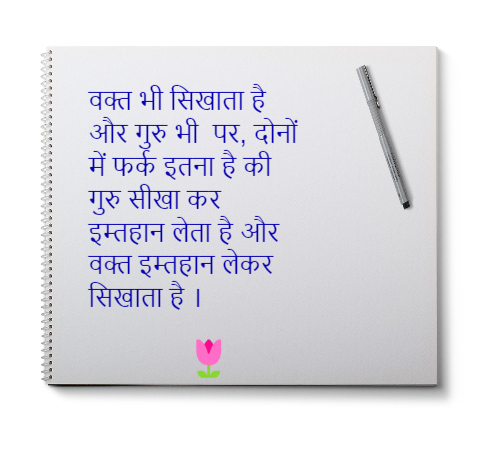 वक्त भी सिखाता है
और गुरु भी  पर, दोनों
में फर्क इतना है की
गुरु सीखा कर
इम्तहान लेता है और
वक्त इम्तहान लेकर
सिखाता है ।